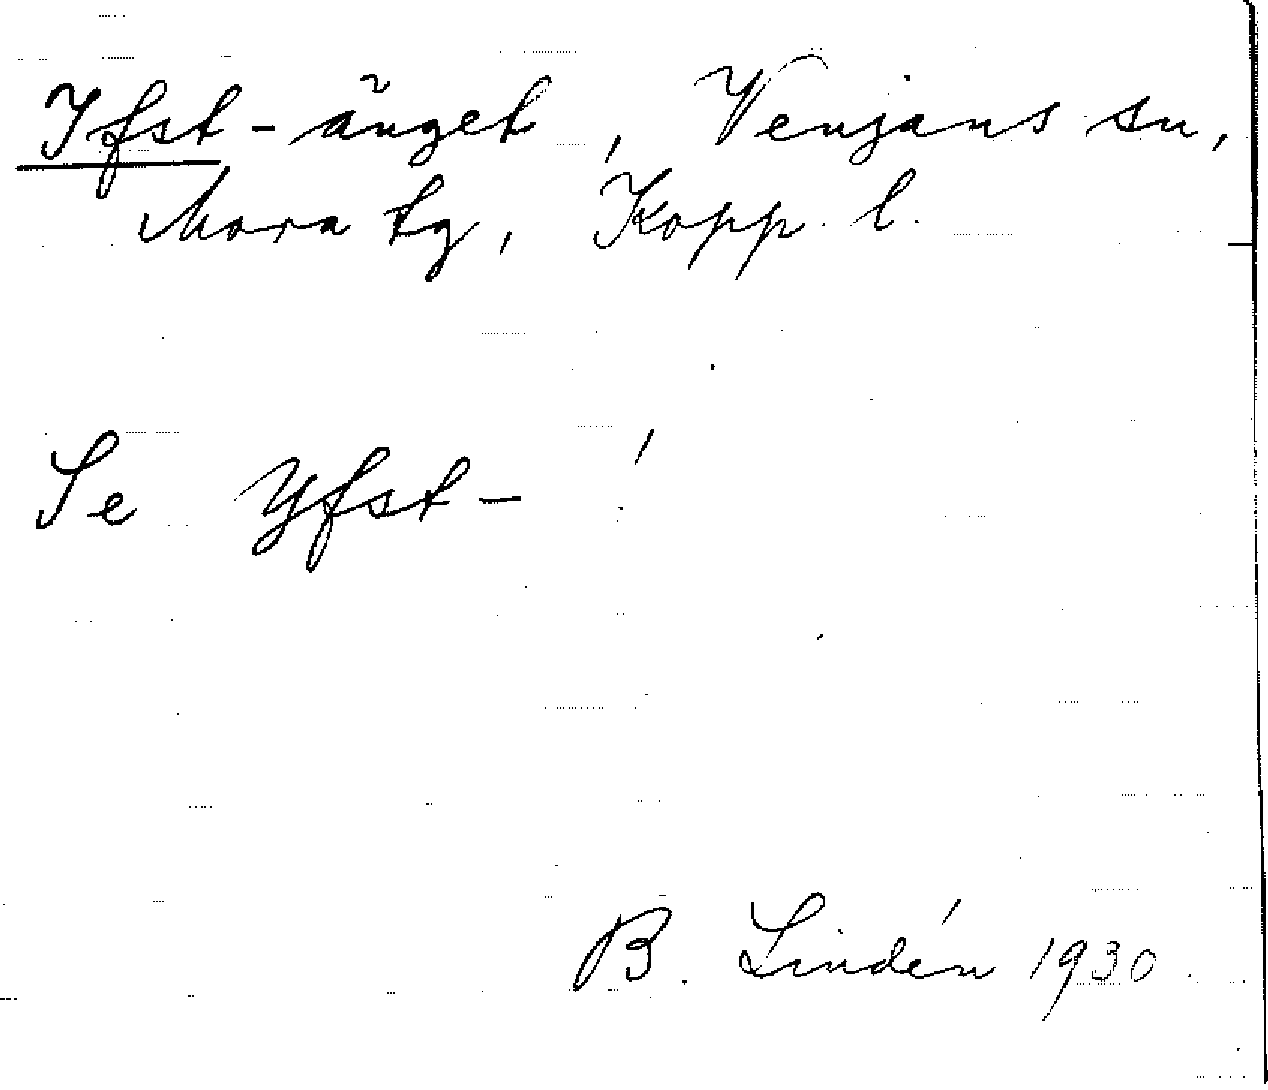 Ifst-änget, Venjans sn,
Mora tg, Kopp. l.
Se Yfst- !
B. Lindén 1930.